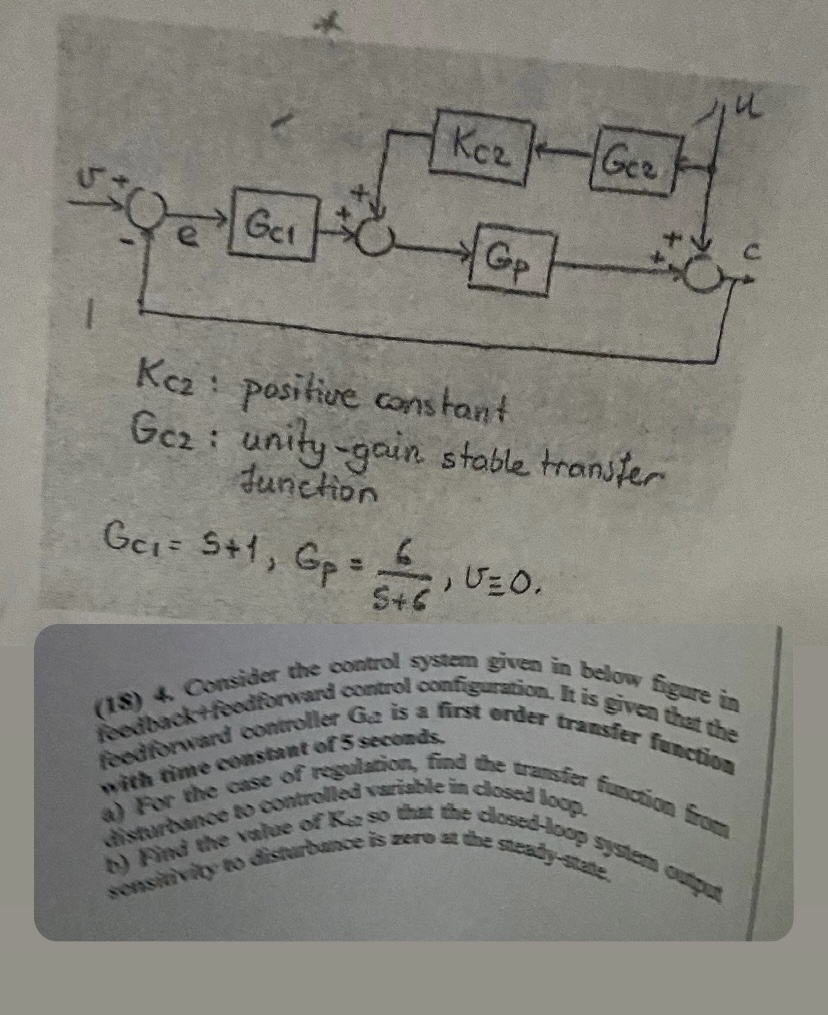 u
Kc2
Gc2
v + + + +
e Gc1 + Gp + c
-
Kc2 : positive constant
Gc2 : unity-gain stable transfer
function
Gc1 = S+1, Gp = 6/(S+6), v≡0.
(18) 4. Consider the control system given in below figure in
feedback+feedforward control configuration. It is given that the
feedforward controller Gc2 is a first order transfer function
with time constant of 5 seconds.
a) For the case of regulation, find the transfer function from
disturbance to controlled variable in closed loop.
b) Find the value of Kc2 so that the closed-loop system output
sensitivity to disturbance is zero at the steady-state.